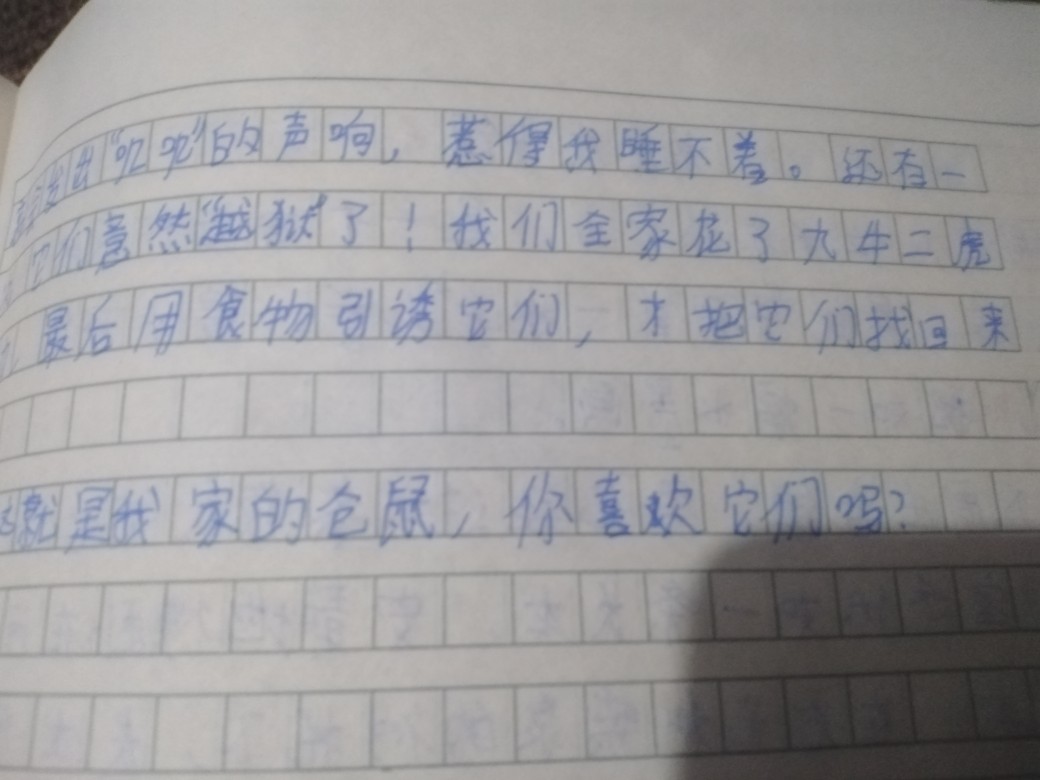 会发出“吱吱”的声响，惹得我睡不着。还有一
它们竟然“越狱”了！我们全家花了九牛二虎
最后用食物引诱它们，才把它们找回来
这就是我家的仓鼠，你喜欢它们吗？